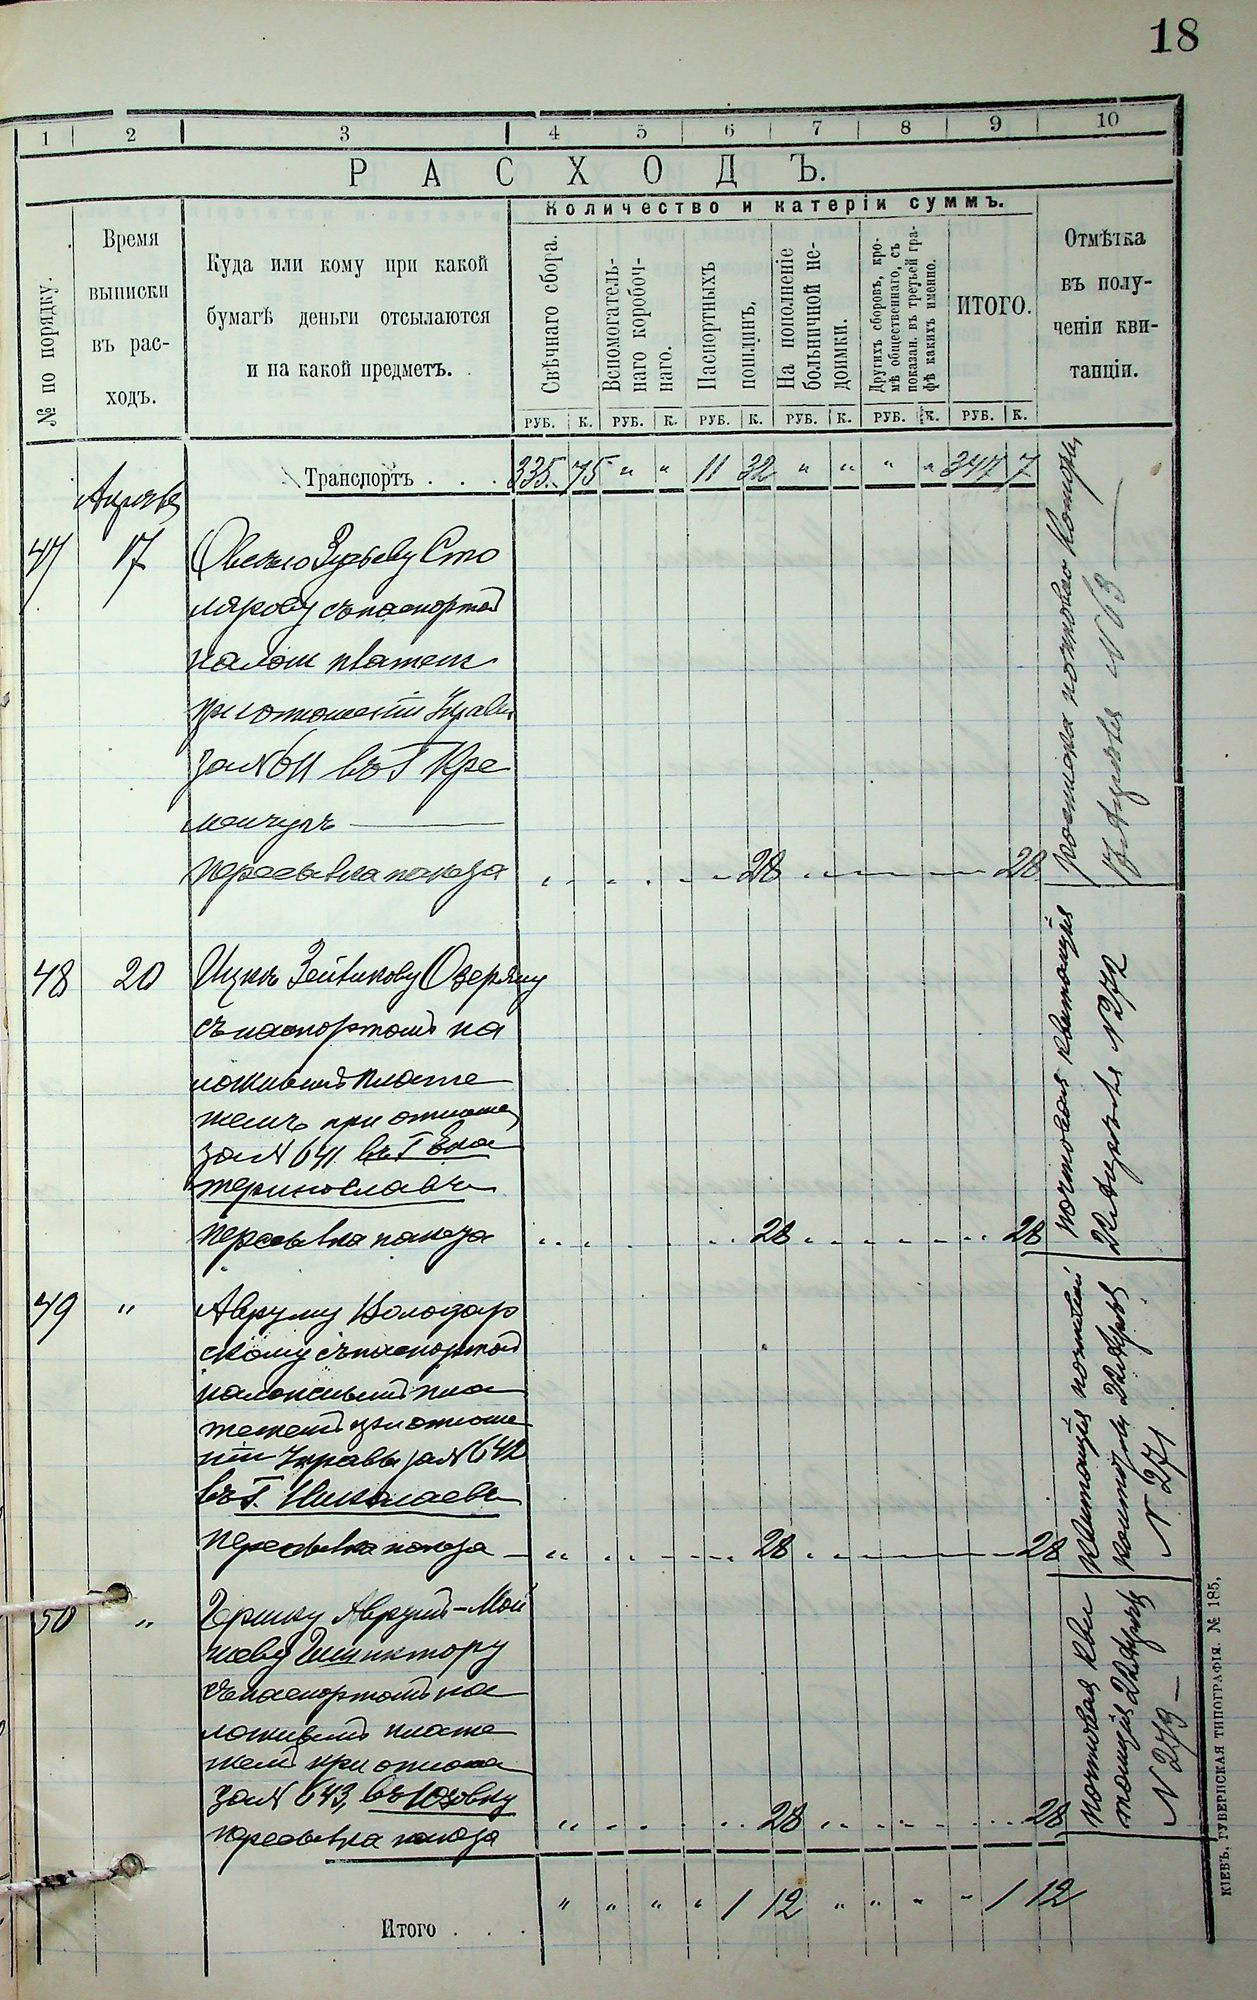 18
1 2 3 4 5 6 7 8 9 10
РАСХОДЪ.
№ по порядку.
Время
выписки
въ рас-
ходъ.
Куда или кому при какой
бумагѣ деньги отсылаются
и на какой предметъ.
Количество и катеріи суммъ.
Свѣчнаго сбора.
Вспомогатель-
наго коробоч-
наго.
Паспортныхъ
пошлинъ.
На пополненіе
больничной не-
доимки.
Другихъ сборовъ, кро-
мѣ общественнаго, съ
показан. въ третьей гра-
фѣ какихъ именно.
ИТОГО.
Отмѣтка
въ полу-
ченіи кви-
танціи.
РУБ. К. РУБ. К. РУБ. К. РУБ. К. РУБ. К. РУБ. К.
Транспортъ . . . 335 75 " " 11 32 " " " " 347 7
Апрѣля
47 17
Столярову съ паспортом
налож платеж
при отношеніи Управы
за № 611 въ Г Кре
менчугъ
пересылка паказа 28 28
почтовой конторы
17 Апрѣля № 63
48 20 Ицкъ Озеряну
съ паспортомъ на
ложнымъ плате
жемъ при отноше
за № 641 въ Г Ека
теринославъ
пересылка паказа 28 28
почтовая квитанція
22 Апрѣля № 272
49 " Авруму Володар
скому съ паспортом
наложнымъ пла
тежемъ при отноше
ніи Управы за № 642
въ Г. Николаевъ
пересылка паказа 28 28
квитанція почтовой
конторы 22 Апрѣля
№ 271
50 " Гершку Аврумъ-Мой
шеву
съ паспортомъ на
ложнымъ плате
жемъ при отноше
за № 643, въ Юзовку
пересылка паказа 28 28
почтовая кви
танція 22 Апрѣля
№ 273
Итого . . . " " " " 1 12 " " " " 1 12
КІЕВЪ, ГУБЕРНСКАЯ ТИПОГРАФІЯ. № 185,